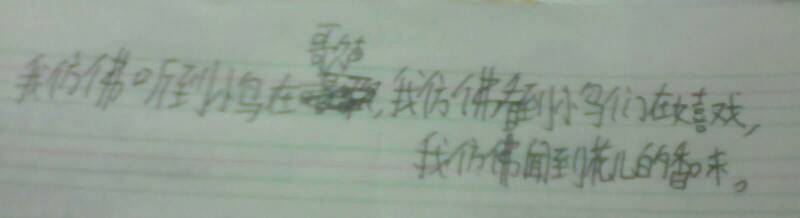 歌声
我仿佛听到小鸟在,我仿佛看到小鸟们在嬉戏,
我仿佛闻到花儿的香味。